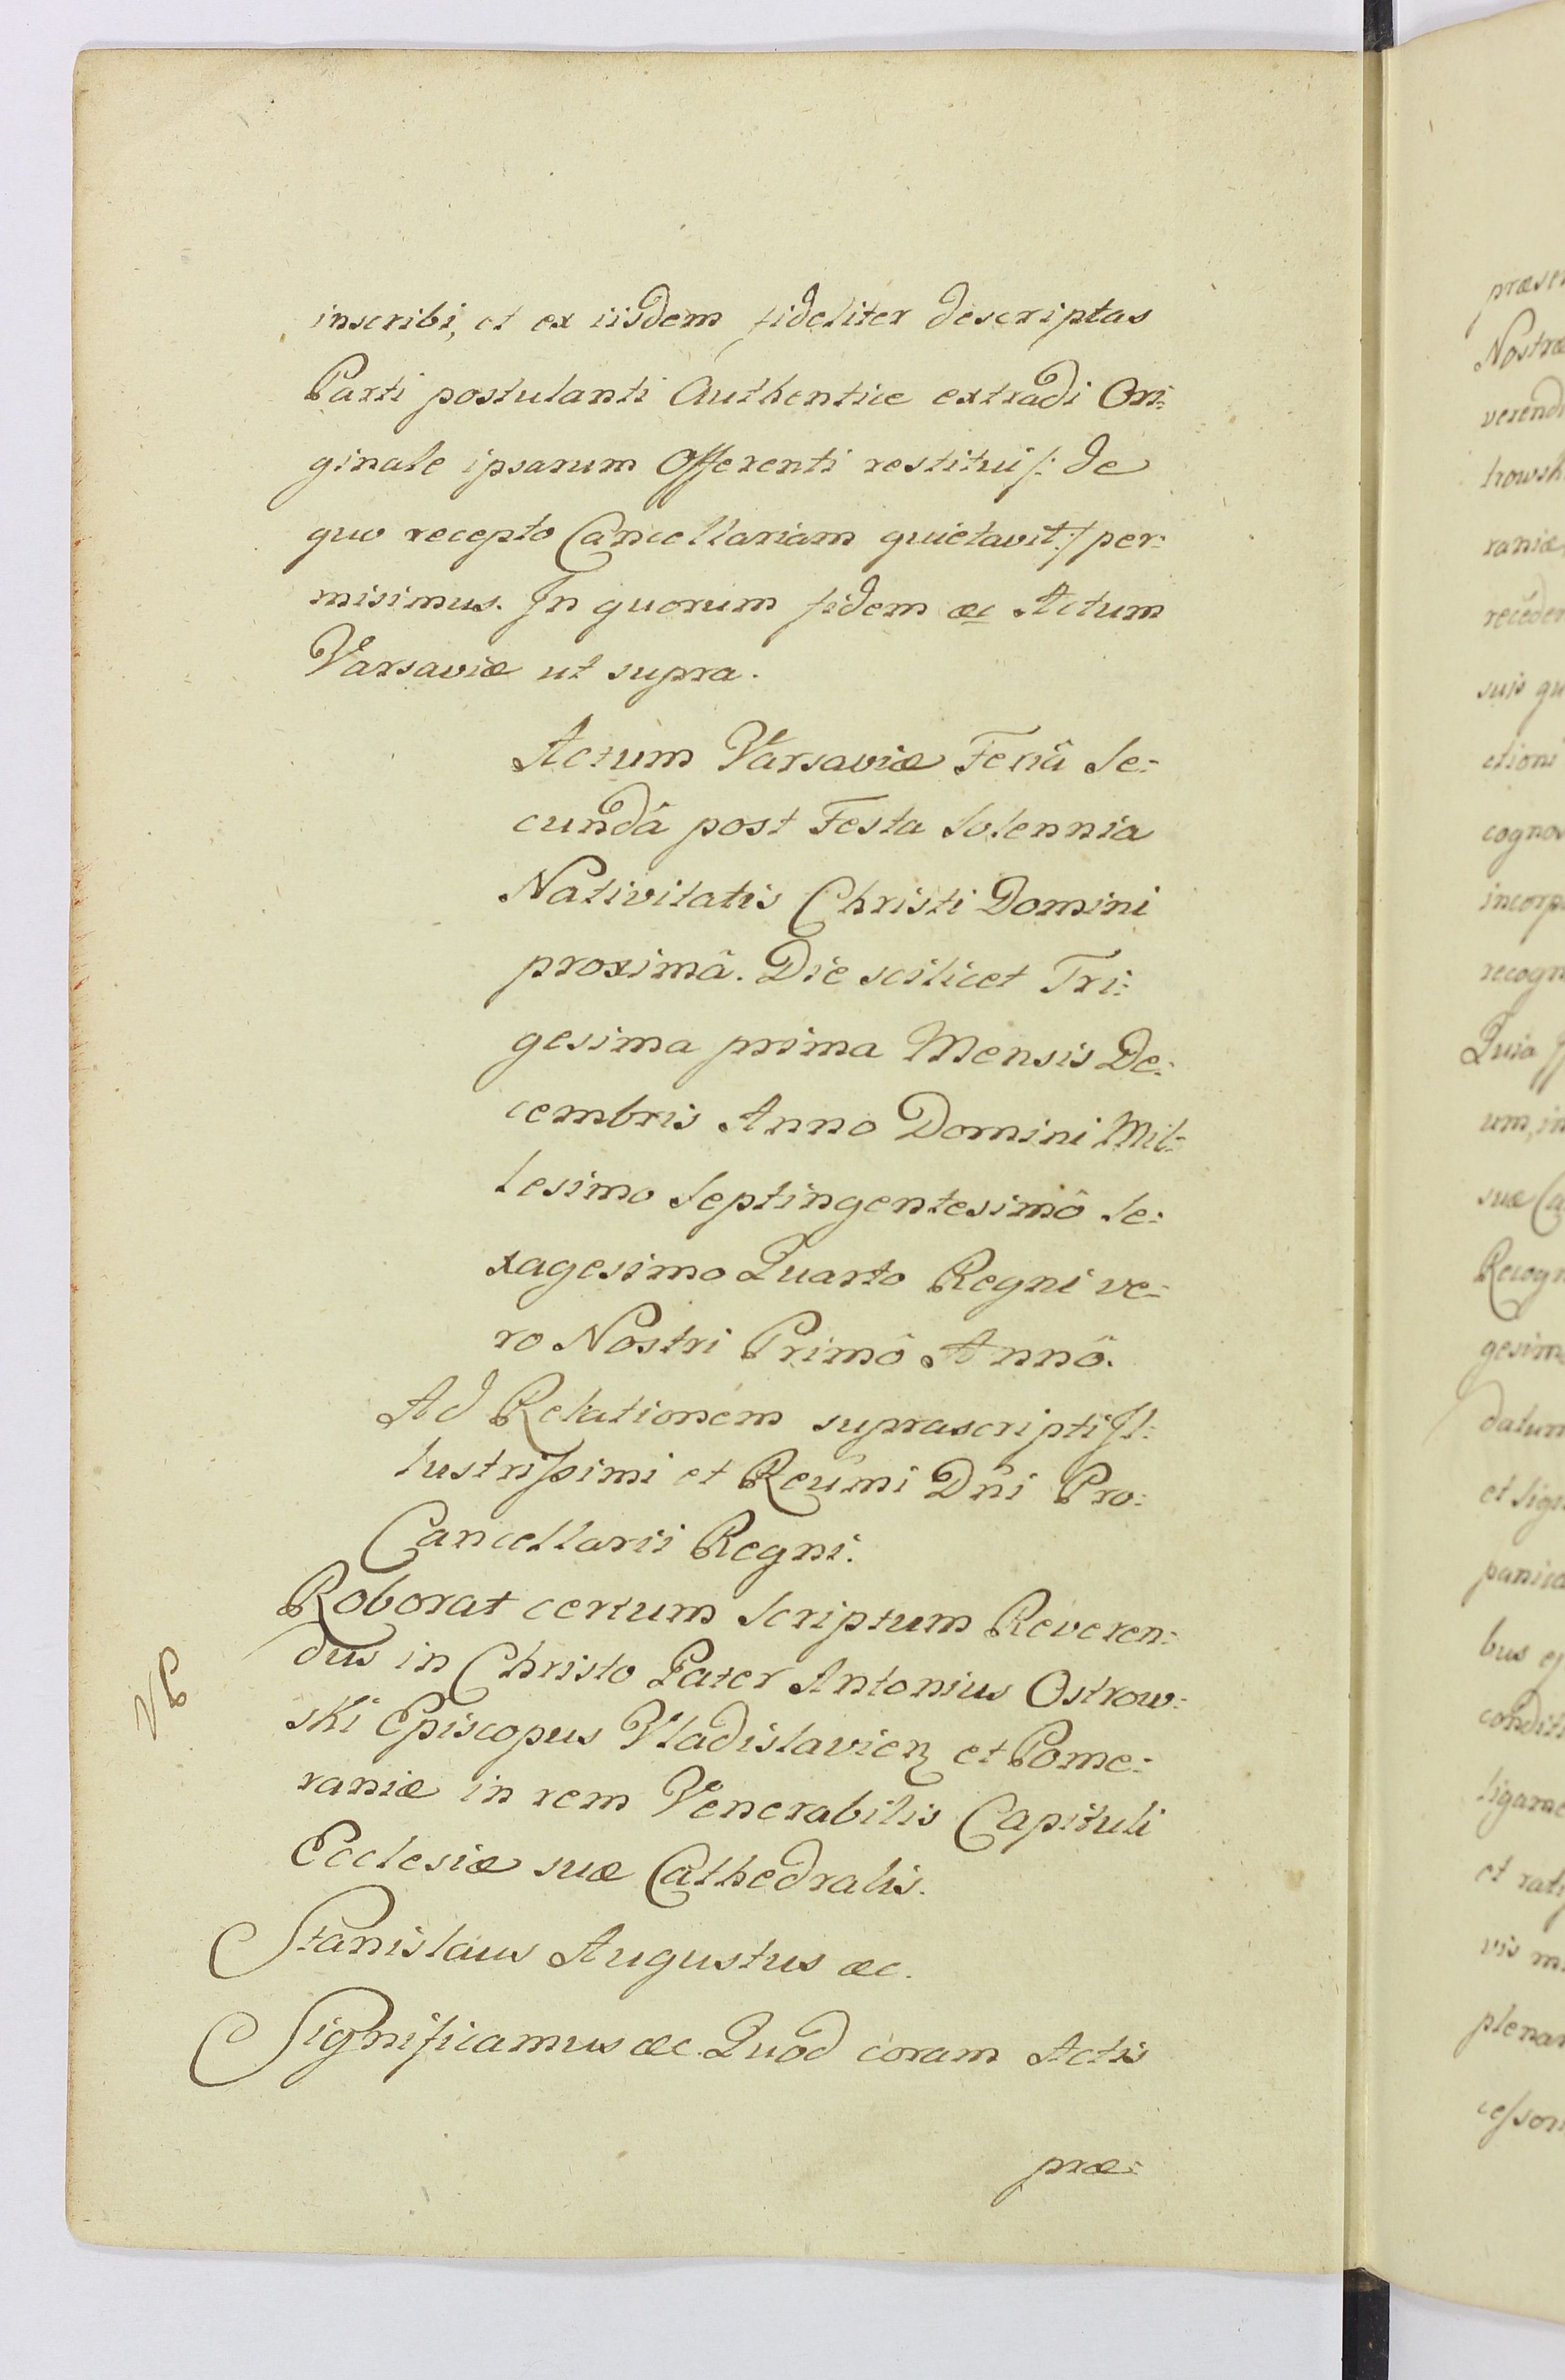 inscribi, et ex iisdem fideliter descriptas
Parti postulanti Authentice extradi Ori:
ginale ipsarum Offerenti restitui /: de
quo recepto Cancellariam quietavit :/ per:
misimus. In quorum fidem &c Actum
Varsaviæ ut supra.
Actum Varsaviæ Feriâ Se:
cundâ post Festa Solennia
Nativitatis Christi Domini
proximâ. Die scilicet Tri:
gesima prima Mensis De:
cembris Anno Domini Mil:
lesimo Septingentesimô Se:
xagesimo Quarto Regni ve:
ro Nostri Primô Annô.
Ad Relationem suprascripti Il:
lustrissimi et Reūmi Dn̄i Pro:
Cancellarii Regni.
Roborat certum Scriptum Reveren:
dus in Christo Pater Antonius Ostrow:
ski Episcopus Vladislavien et Pome:
raniæ in rem Venerabilis Capituli
Ecclesiæ suæ Cathedralis.
Stanislaus Augustus &c.
Significamus &c. Quod coram Actis
præ:
præsen
Nostræ
verend
trowsk
raniæ
receden
suis qu
ctioni
cognov
incorp
recogn
Quia
um, in
suæ Ca
Recogn
gesim
datum
et sign
panica
bus ej
condit
ligame
et rati
vis m
plenar
cessori